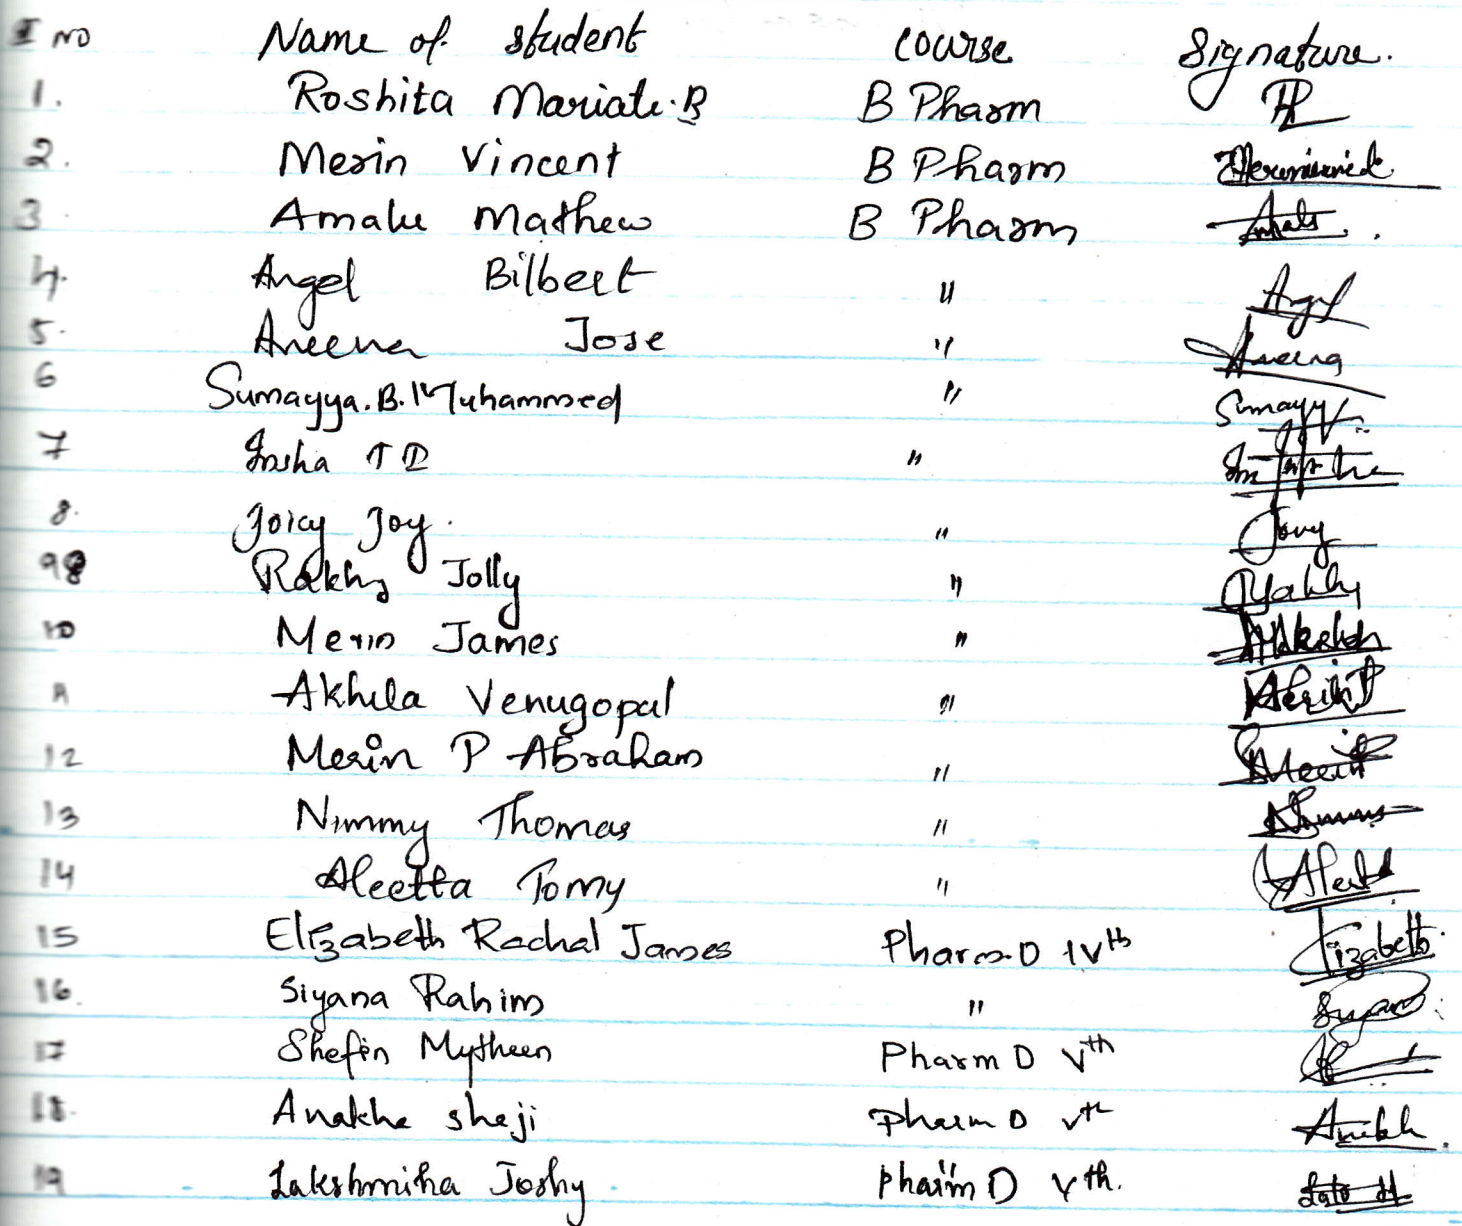 I no Name of student course Signature.
1. Roshita Mariate.B B Pharm
2. Merin Vincent B Pharm
3 Amale Mathew B Pharm Amala.
4. Angel Bilbert " Angel
5. Aneena Jose " Aneena
6 Sumayya.B.Muhammed " Sumayy
7 Insha T I "
8. Joicy Joy. " Joicy
9 Rakhy Jolly "
10 Merin James "
11 Akhila Venugopal " Merin
12 Merin P Abraham " Merin
13 Nimmy Thomas "
14 Aleetta Tomy " Aleet
15 Elizabeth Rachal James Pharm.D IVth Elizabeth
16. Siyana Rahim "
17 Shefin Mytheen Pharm D Vth
18. Anakha Sheji Pharm D Vth
19 Lakshmiha Joshy Pharm D Vth.